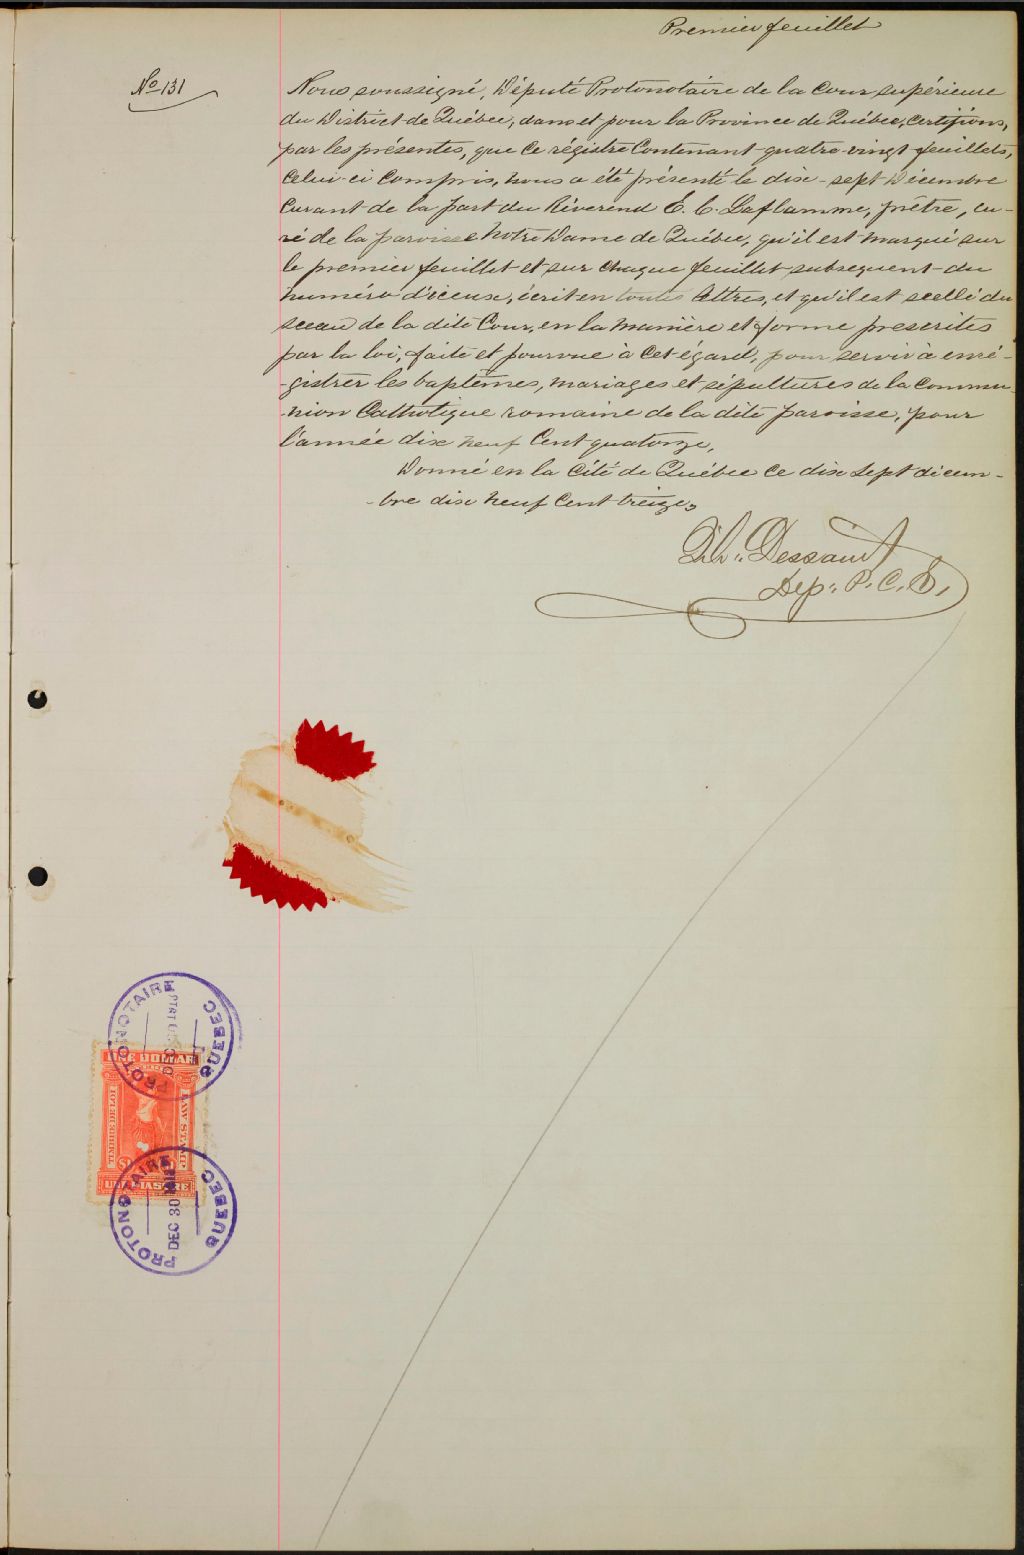 Premier feuillet
No 131
Nous soussigné, Député Protonotaire de la Cour supérieure
du District de Québec, dans et pour la Province de Québec, certifions,
par les présentes, que ce régistre contenant quatre-vingt feuillets,
celui-ci compris, nous a été présenté le dix-sept Décembre
Curant de la part du Réverend E. C. Laflamme, prêtre, cu-
ré de la paroisse Notre Dame de Québec, qu'il est marqué sur
le premier feuillet et sur chaque feuillet subsequent du
numéro d'iceux, écrit en toutes lettres, et qu'il est scellé du
sceau de la dite Cour, en la manière et forme prescrites
par la loi, faite et pourvue à cet égard, pour servir à enré-
-gistrer les baptêmes, mariages et sépultures de la Commu-
-nion Catholique romaine de la dite paroisse, pour
l'année dix neuf Cent quatorze,
Donné en la Cité de Québec ce dix sept décem-
-bre dix neuf Cent treize,
Dep: P. C. S.
PROTONOTAIRE
QUEBEC
ONE DOLLAR
TIMBRE DE LOI
LAW STAMP
UNE PIASTRE
PROTONOTAIRE
DEC 30
QUEBEC